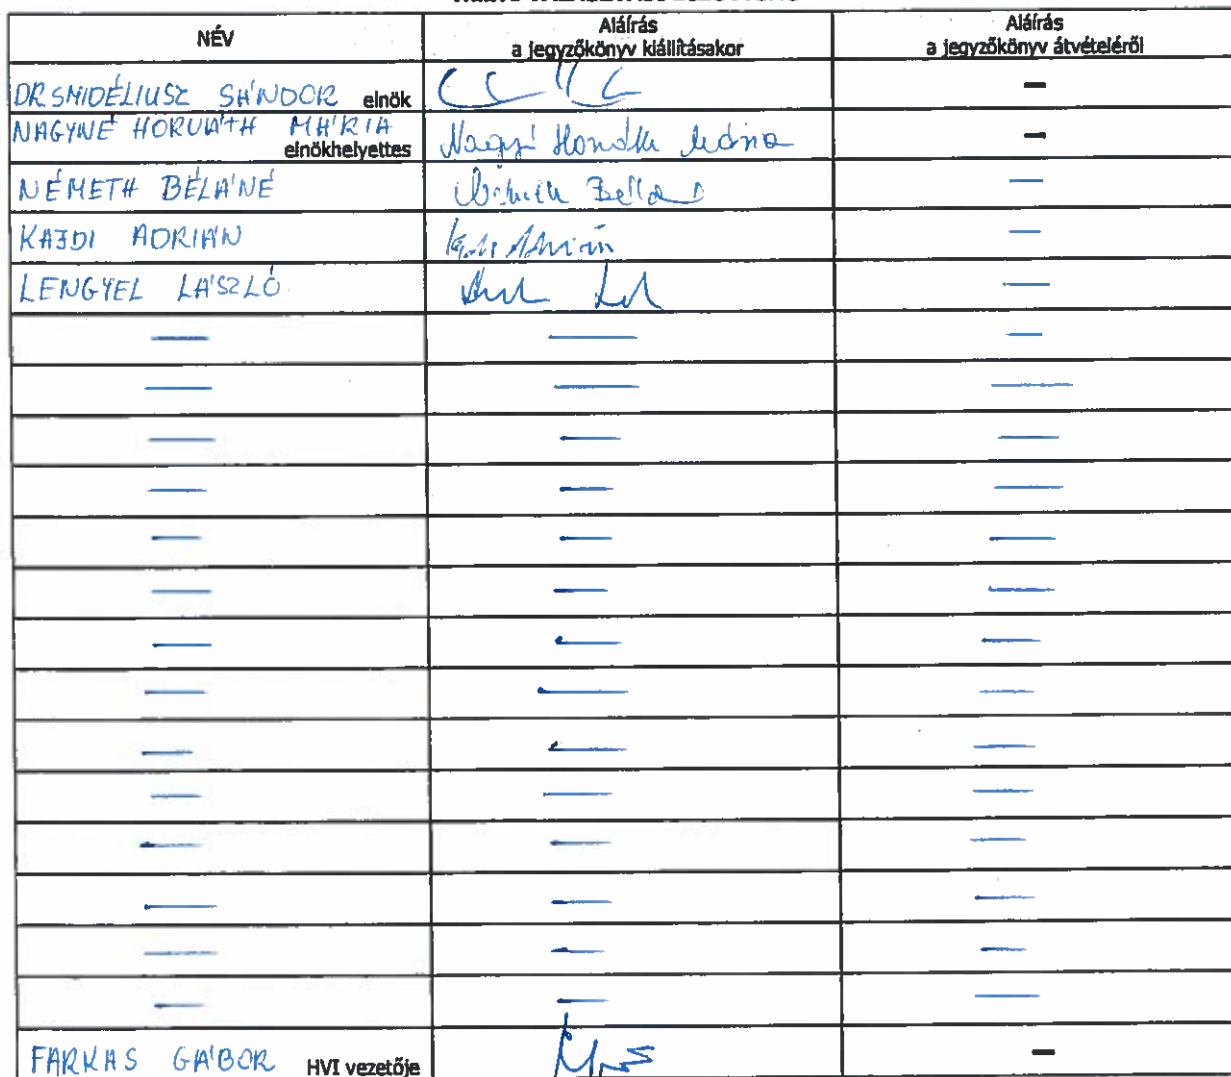 NÉV
Aláírás
a jegyzőkönyv kiállításakor
Aláírás
a jegyzőkönyv átvételéről
DR SMIDÉLIUSZ SÁNDOR elnök
—
NAGYNÉ HORVÁTH MÁRIA
elnökhelyettes
Nagyné Horváth Mária
—
NÉMETH BÉLÁNÉ
—
KAJDI ADRIÁN
—
LENGYEL LÁSZLÓ
—
— — —
— — —
— — —
— — —
— — —
— — —
— — —
— — —
— — —
— — —
— — —
— — —
— — —
— — —
FARKAS GÁBOR HVI vezetője
—